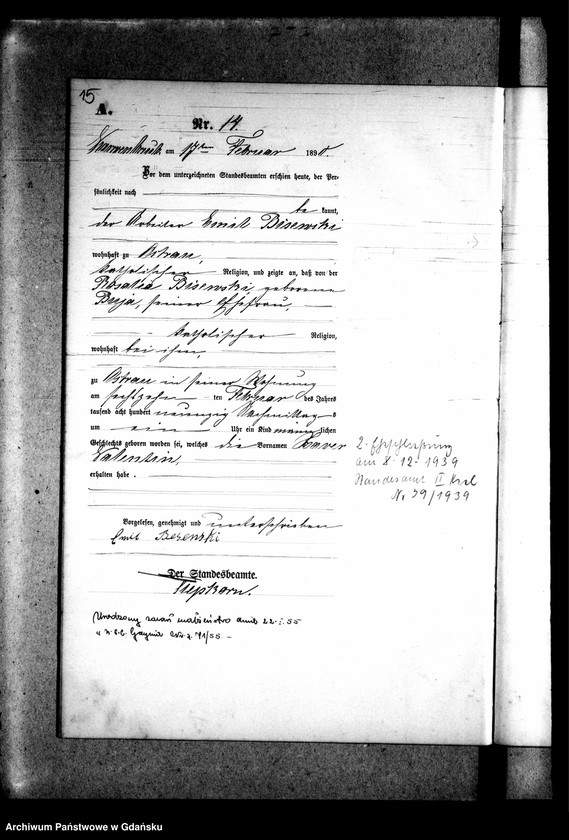 15
A.
Nr. 14.
am 17ten Februar 1890.
Vor dem unterzeichneten Standesbeamten erschien heute, der Per-
sönlichkeit nach
be kannt,
der Arbeiter Emil Bisewski
wohnhaft zu Ostrau,
katholischer Religion, und zeigte an, daß von der
Rosalia Bisewski, geborene
Buja, seiner Ehefrau,
katholischer Religion,
wohnhaft bei ihm,
zu Ostrau in seiner Wohnung
am sechszehn ten Februar des Jahres
tausend acht hundert neunzig Nachmittag s
um ein Uhr ein Kind männ lichen
Geschlechts geboren worden sei, welches die Vornamen Xaver
Valentin,
erhalten habe .
Vorgelesen, genehmigt und unterschrieben
Emil
Der Standesbeamte.
2. Eheschließung
am 8.12.1939
Standesamt II
Nr 79/1939
Urodzony zawarł małżeństwo dnia 22.I.55
w U.S.C. Gdynia 71/55 -
Archiwum Państwowe w Gdańsku